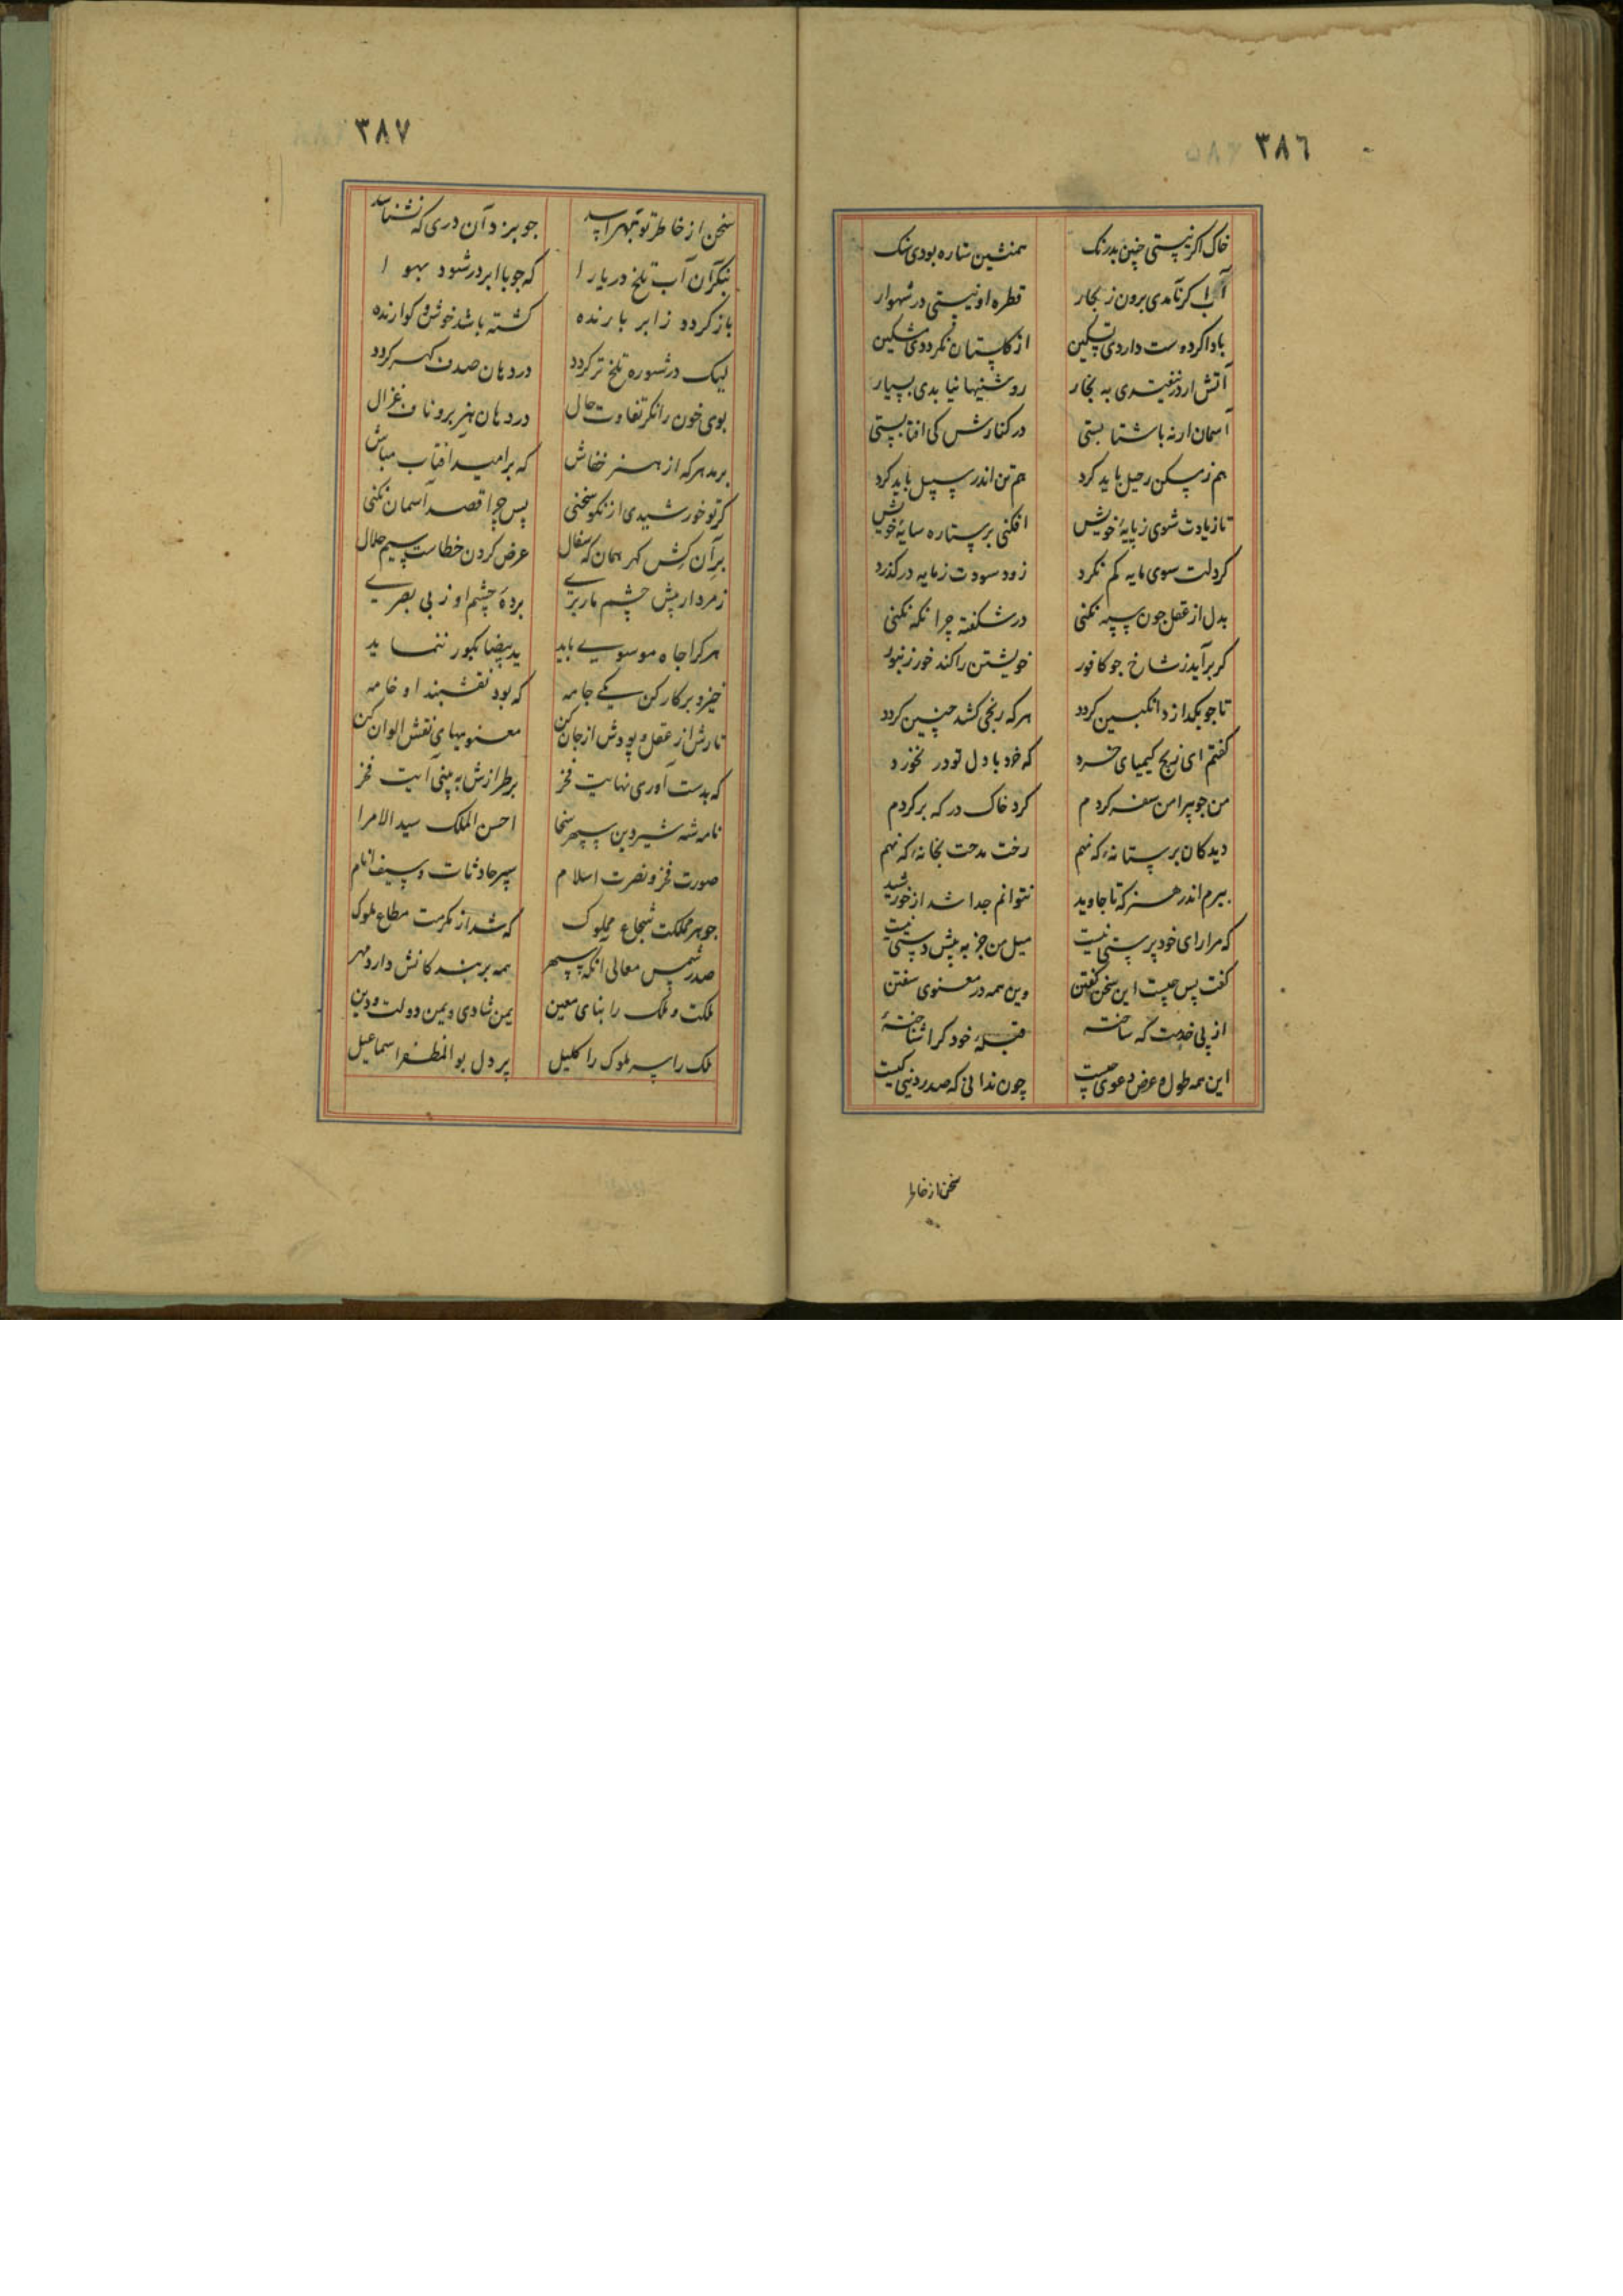 ۳۸٦
خاک اکر نیستی چنین بدرنک همنشین ستاره بودی سنک
آب کر نآمدی برون ز بحار قطره او نیستی در شهوار
باد اکر دوست داردی تسکین از کلستان نکرددی مشکین
آتش ار در نفیتدی به بخار روشنیها نیابدی بسیار
آسمان ار نه باشتابستی در کنارش کی افتابستی
هم ز مسکن رحیل باید کرد هم تن اندر سبیل باید کرد
تا زیادت شوی ز پایهٔ خویش افکنی بر ستاره سایهٔ خویش
کر دلت سوی مایه کم نکرد زود سودت ز مایه در کذرد
بدل از عقل جون سپه نکنی در شکفته چرا نکه نکنی
کر برآید ز شاخ جو کافور خویشتن را کند خور زنبور
تا جو بکدازد انکبین کردد هر که رنجی کشد چنین کردد
کفتم ای زیج کیمیای خرد که خرد با دل تو در نخورد
من جو پیرامن سفر کردم کرد خاک در که بر کردم
دیدکان بر ستانهٔ که نهم رخت مدحت بخانهٔ که نهم
ببرم اندر هنر که تا جاوید نتوانم جدا شد از خورشید
که مرا رای خود پرستی نیست میل من جز به پیش دستی نیست
کفت پس چیست این سخن کفتن وین همه در معنوی سفتن
از پی خدمت که ساختهٔ قبلهٔ خود کرا شناختهٔ
این همه طول و عرض دعوی چیست چون ندانی که صدر دنیی کیست
سخن از خاطر
۳۸۷
سخن از خاطر تو بهراسد جو برد آن دری که نشناسد
بنکر آن آب تلخ دریا را که جو با ابر در شود بهوا
باز کردد ز ابر بارنده کشته باشد خوش و کوارنده
لیک در شوره تلخ تر کردد در دهان صدف کهر کردد
بوی خون را نکر تفاوت حال در دهان هزبر و ناف غزال
برمد هر که از هنر خفاش که بر امید آفتاب مباش
کر تو خورشیدی از نکو سخنی پس چرا قصد آسمان نکنی
بر آن کش کهر همان که سفال عرض کردن خطاست سیم حلال
زمرد ار پیش چشم مار بری برده چشم او ز بی بصری
هر کرا جاه موسوی باید ید بیضا بکور ننماید
خیز و بر کار کن یکی جامه که بود نقشبند او خامه
تارش از عقل و پودش از جان کن معنویهای نقش الوان کن
که بدست آوری نهایت فخر بر طرازش به بینی آیت فخر
نامه شه شیر دین سپهر سخا احسن الملک سید الامرا
صورت فخر و نصرت اسلام سپر حادثات و سیف انام
جوهر مملکت شجاع مملوک که شد از مکرمت مطاع ملوک
صدر شمس معالی انکه سپهر همه بر بندکانش دارد مهر
ملکت و ملک را بنای معین یمن شادی و یمن دولت و دین
ملک را سر ملوک را کلیل پر دل بو المظفر اسماعیل